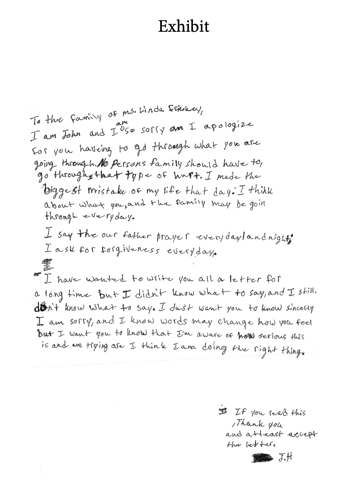 Exhibit
To the family of ms. Linda
I am John and I am so sorry I apologize
for you haveing to go through what you are
going through. No persons family should have to,
go through that type of hurt. I made the
biggest mistake of my life that day. I think
about what you, and the family may be goin
through everyday.
I say the our father prayer everyday/and night,
I ask for forgiveness everyday.
I have wanted to write you all a letter for
a long time but I didn't know what to say, and I still
don't know what to say. I just want you to know sincesly
I am sorry, and I know words may change how you feel
but I want you to know that I'm aware of how serious this
is and me trying are I think I am doing the right thing.
If you read this
, Thank you
and atleast accept
the letter.
J.H